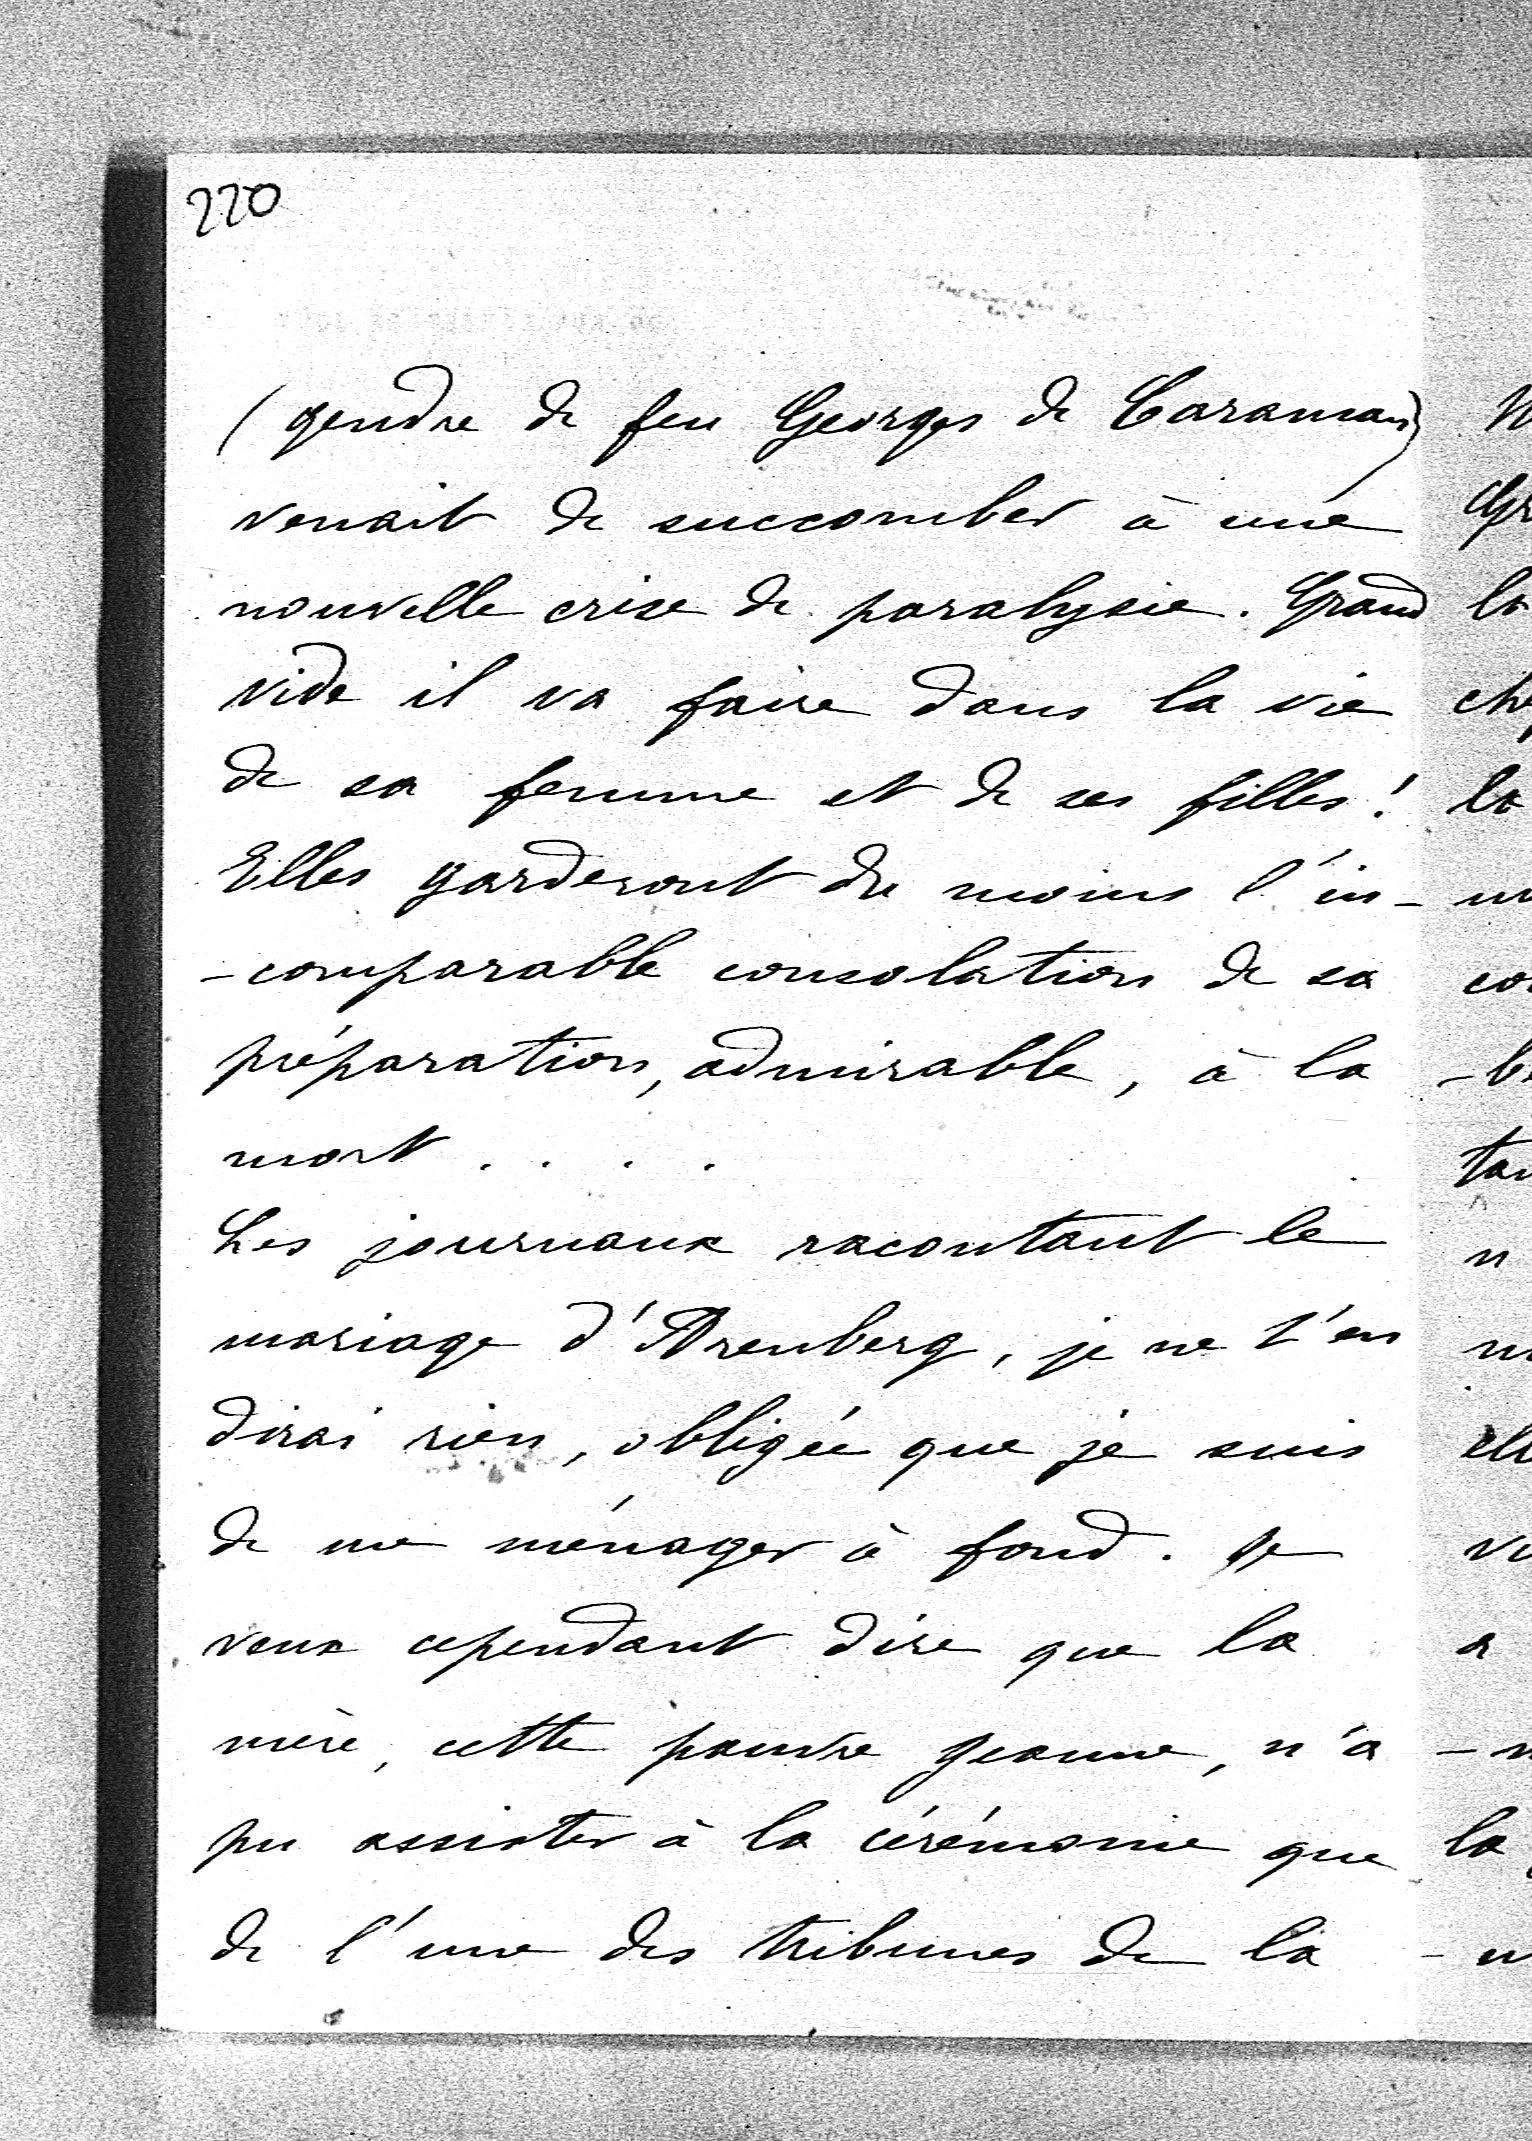 220
(gendre de feu Georges de Caraman)
venait de succomber à une
nouvelle crise de paralysie. Grand
vide il va faire dans la vie
de sa femme et de ses filles !
Elles garderont du moins l'in-
-comparable consolation de sa
préparation, admirable, à la
mort . . . .
Les journaux racontant le
mariage d'Arenberg, je ne t'en
dirai rien, obligée que je suis
de me ménager à fond. Je
veux cependant dire que la
mère, cette pauvre Jeanne, n'a
pu assister à la cérémonie que
de l'une des tribunes de la